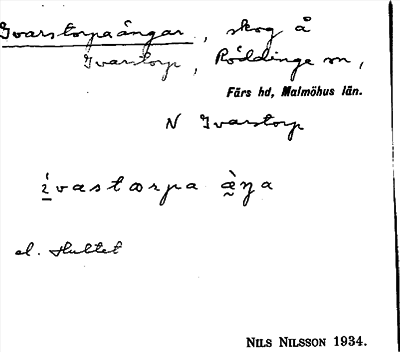 Ivarstorpaängar, skog å
Ivarstorp, Röddinge sn,
Färs hd, Malmöhus län.
N Ivarstorp
ìvastɑrpa æ̀ŋa
el. Hultet
NILS NILSSON 1934.